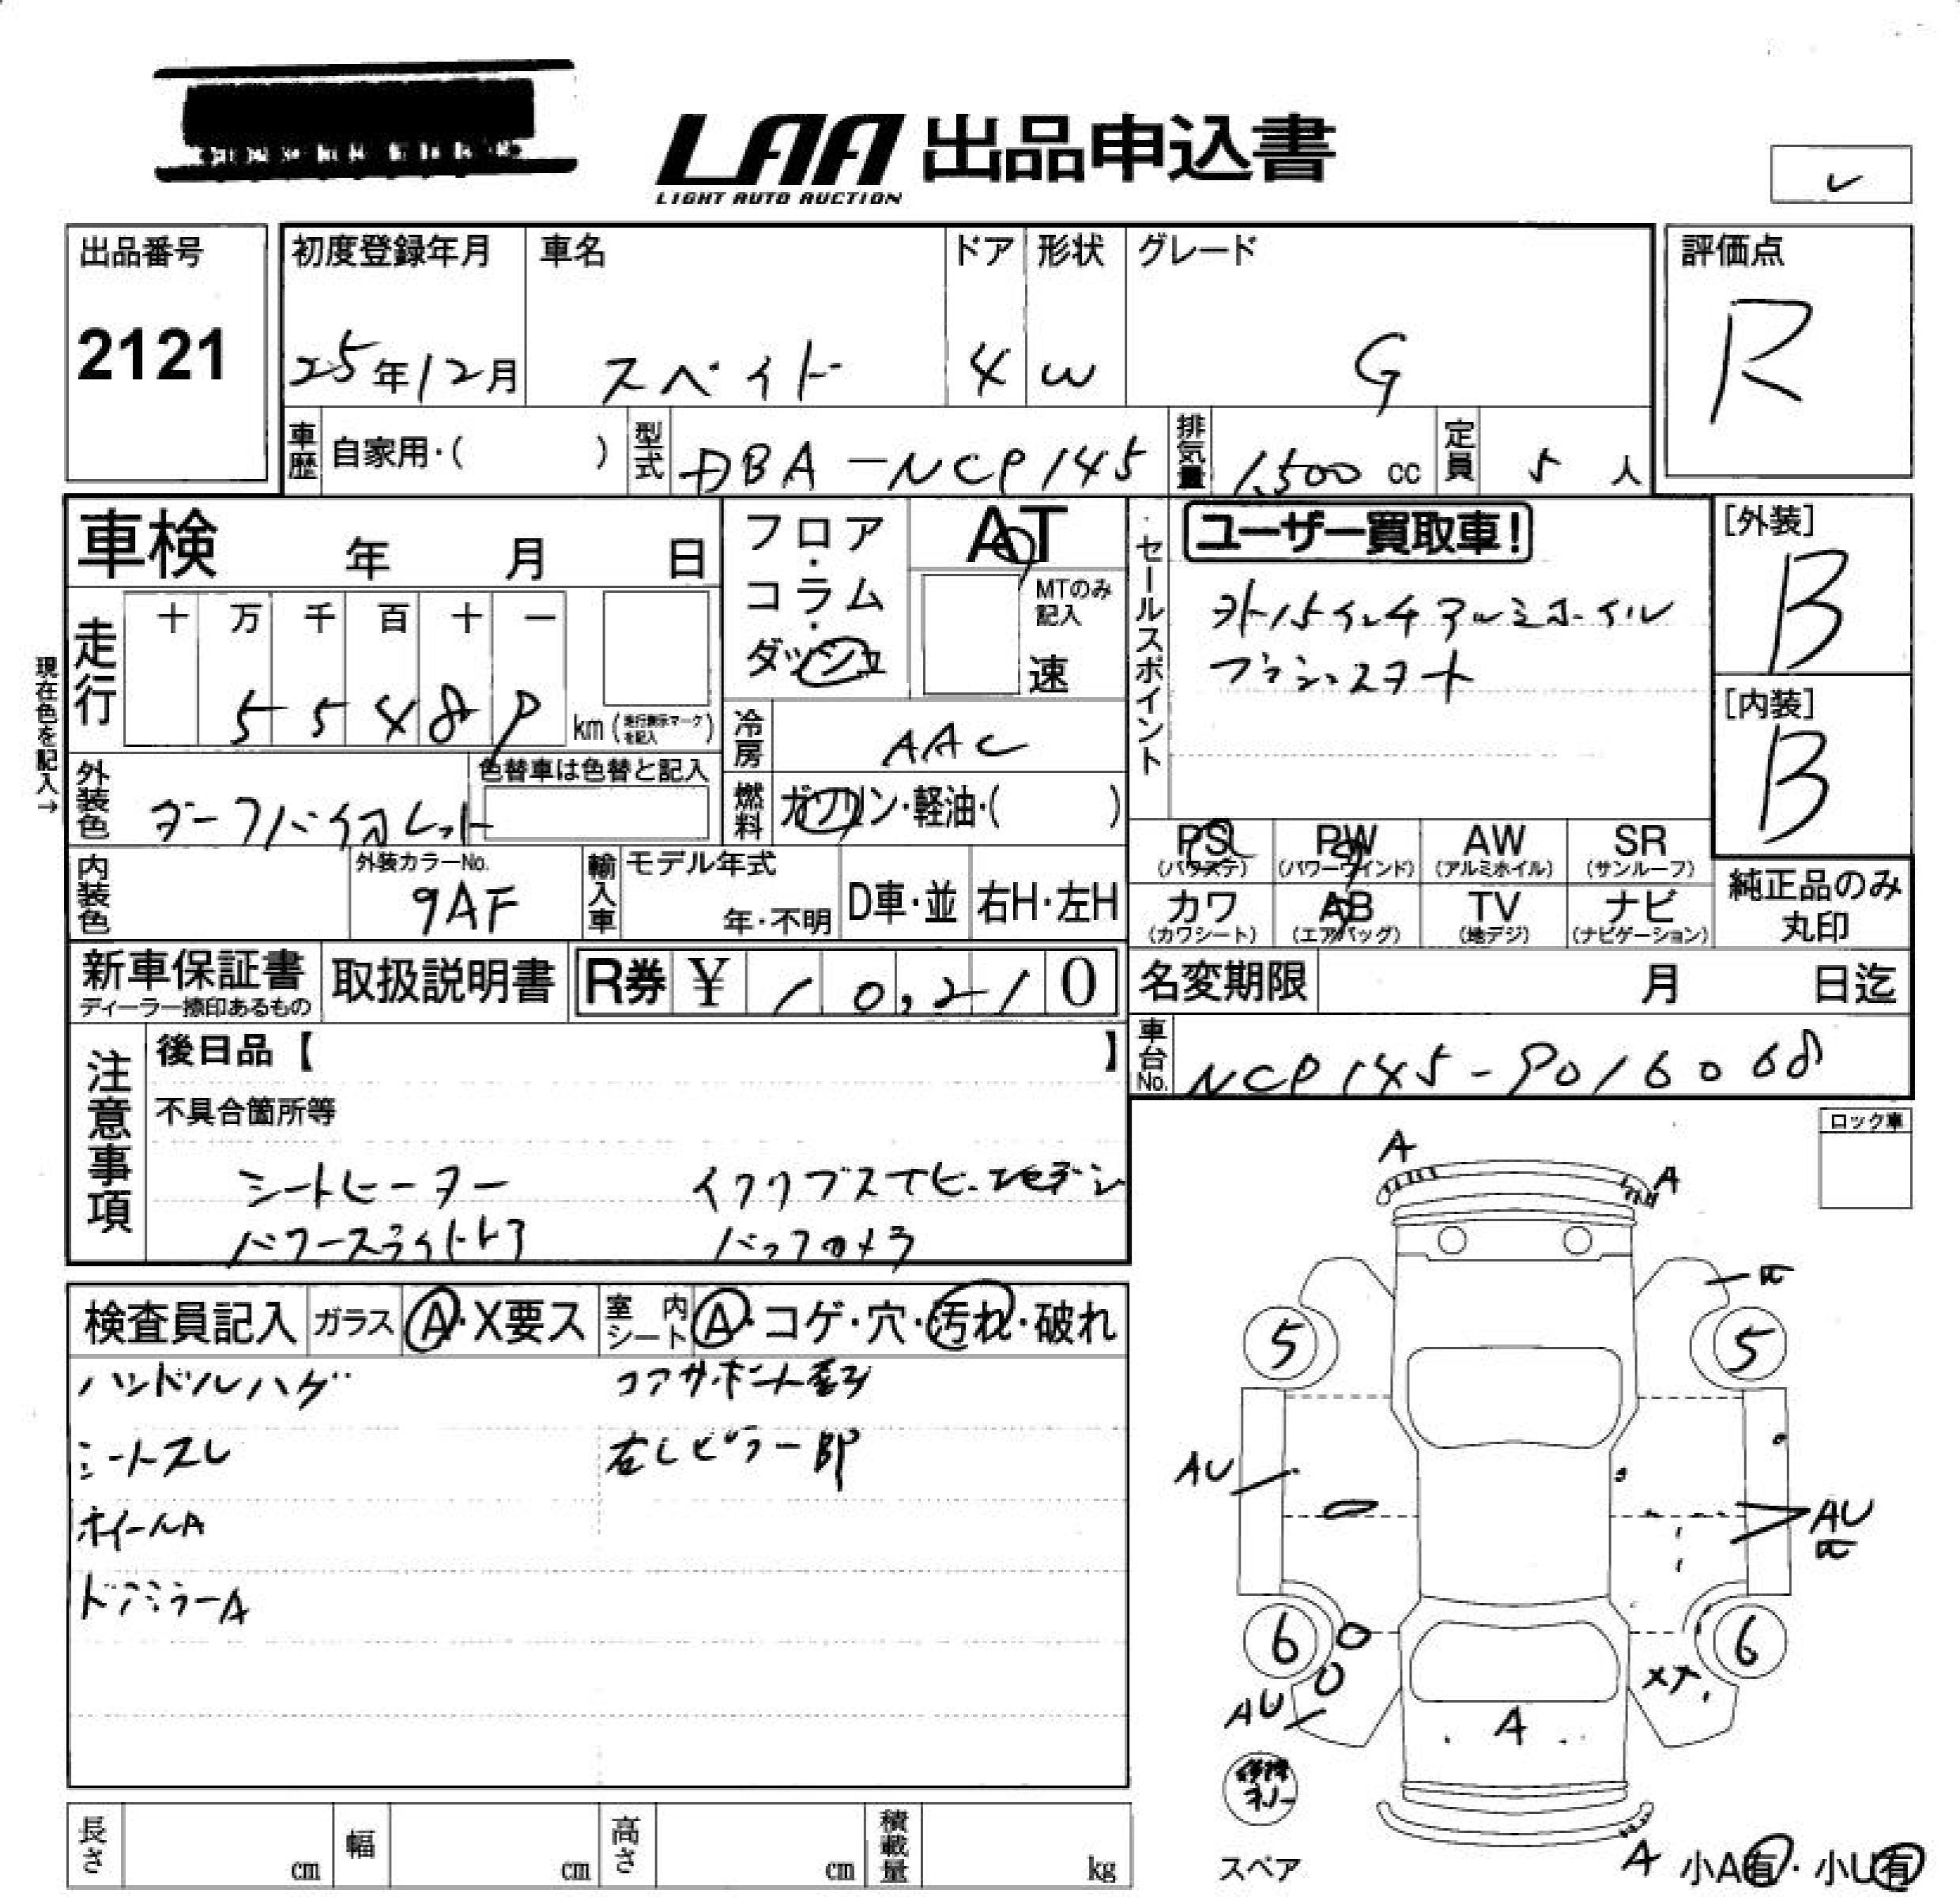 LAA 出品申込書
LIGHT AUTO AUCTION
出品番号
2121
初度登録年月
25年12月
車名
スペイド
ドア
4
形状
W
グレード
G
評価点
R
車歴 自家用・( )
型式 DBA-NCP145
排気量 1,500 cc
定員 5 人
車検 年 月 日
フロア・コラム・ダッシュ
AT
MTのみ記入
速
セールスポイント
ユーザー買取車!
外15インチアルミホイル
プッシュスタート
[外装]
B
[内装]
B
現在色を記入→
走行
十 万 千 百 十 一
5 5 4 8 9 km (走行表示マークを記入)
冷房 AAC
外装色
ダークバイオレット
色替車は色替と記入
燃料 ガソリン・軽油・( )
PS (パワステ)
PW (パワーウインド)
AW (アルミホイル)
SR (サンルーフ)
カワ (カワシート)
AB (エアバッグ)
TV (地デジ)
ナビ (ナビゲーション)
純正品のみ丸印
内装色
外装カラーNo.
9AF
輸入車
モデル年式
年・不明
D車・並
右H・左H
新車保証書
ディーラー捺印あるもの
取扱説明書
R券 ¥ 10,210
名変期限 月 日迄
車台No. NCP145-9016068
注意事項
後日品【 】
不具合箇所等
シートヒーター
パワースライドドア
バックカメラ
ロック車
検査員記入
ガラス A・X要ス
室内シート A・コゲ・穴・汚れ・破れ
ハンドルハゲ
コアサポート歪み
シートスレ
右Lピラー凹
ホイールA
ドアミラーA
A
A
5
5
AU
AU
6
6
AU
XT
A
A
スペア
小A有・小U有
長さ cm
幅 cm
高さ cm
積載量 kg